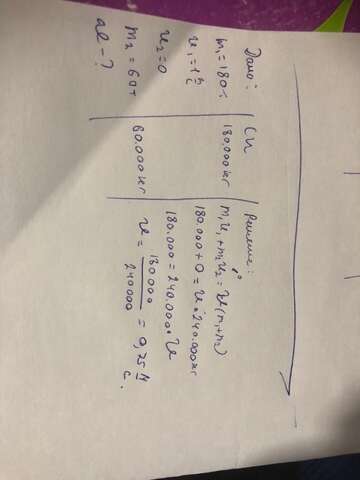 Дано:
m₁ = 180т
u₁ = 1 м/с
u₂ = 0
m₂ = 60т
u - ?
СИ
180.000 кг
60.000 кг
Решение:
m₁u₁ + m₂u₂ = u(m₁+m₂)
180.000 + 0 = u · 240.000 кг
180.000 = 240.000 · u
u = 180000/240000 = 0,75 м/с.